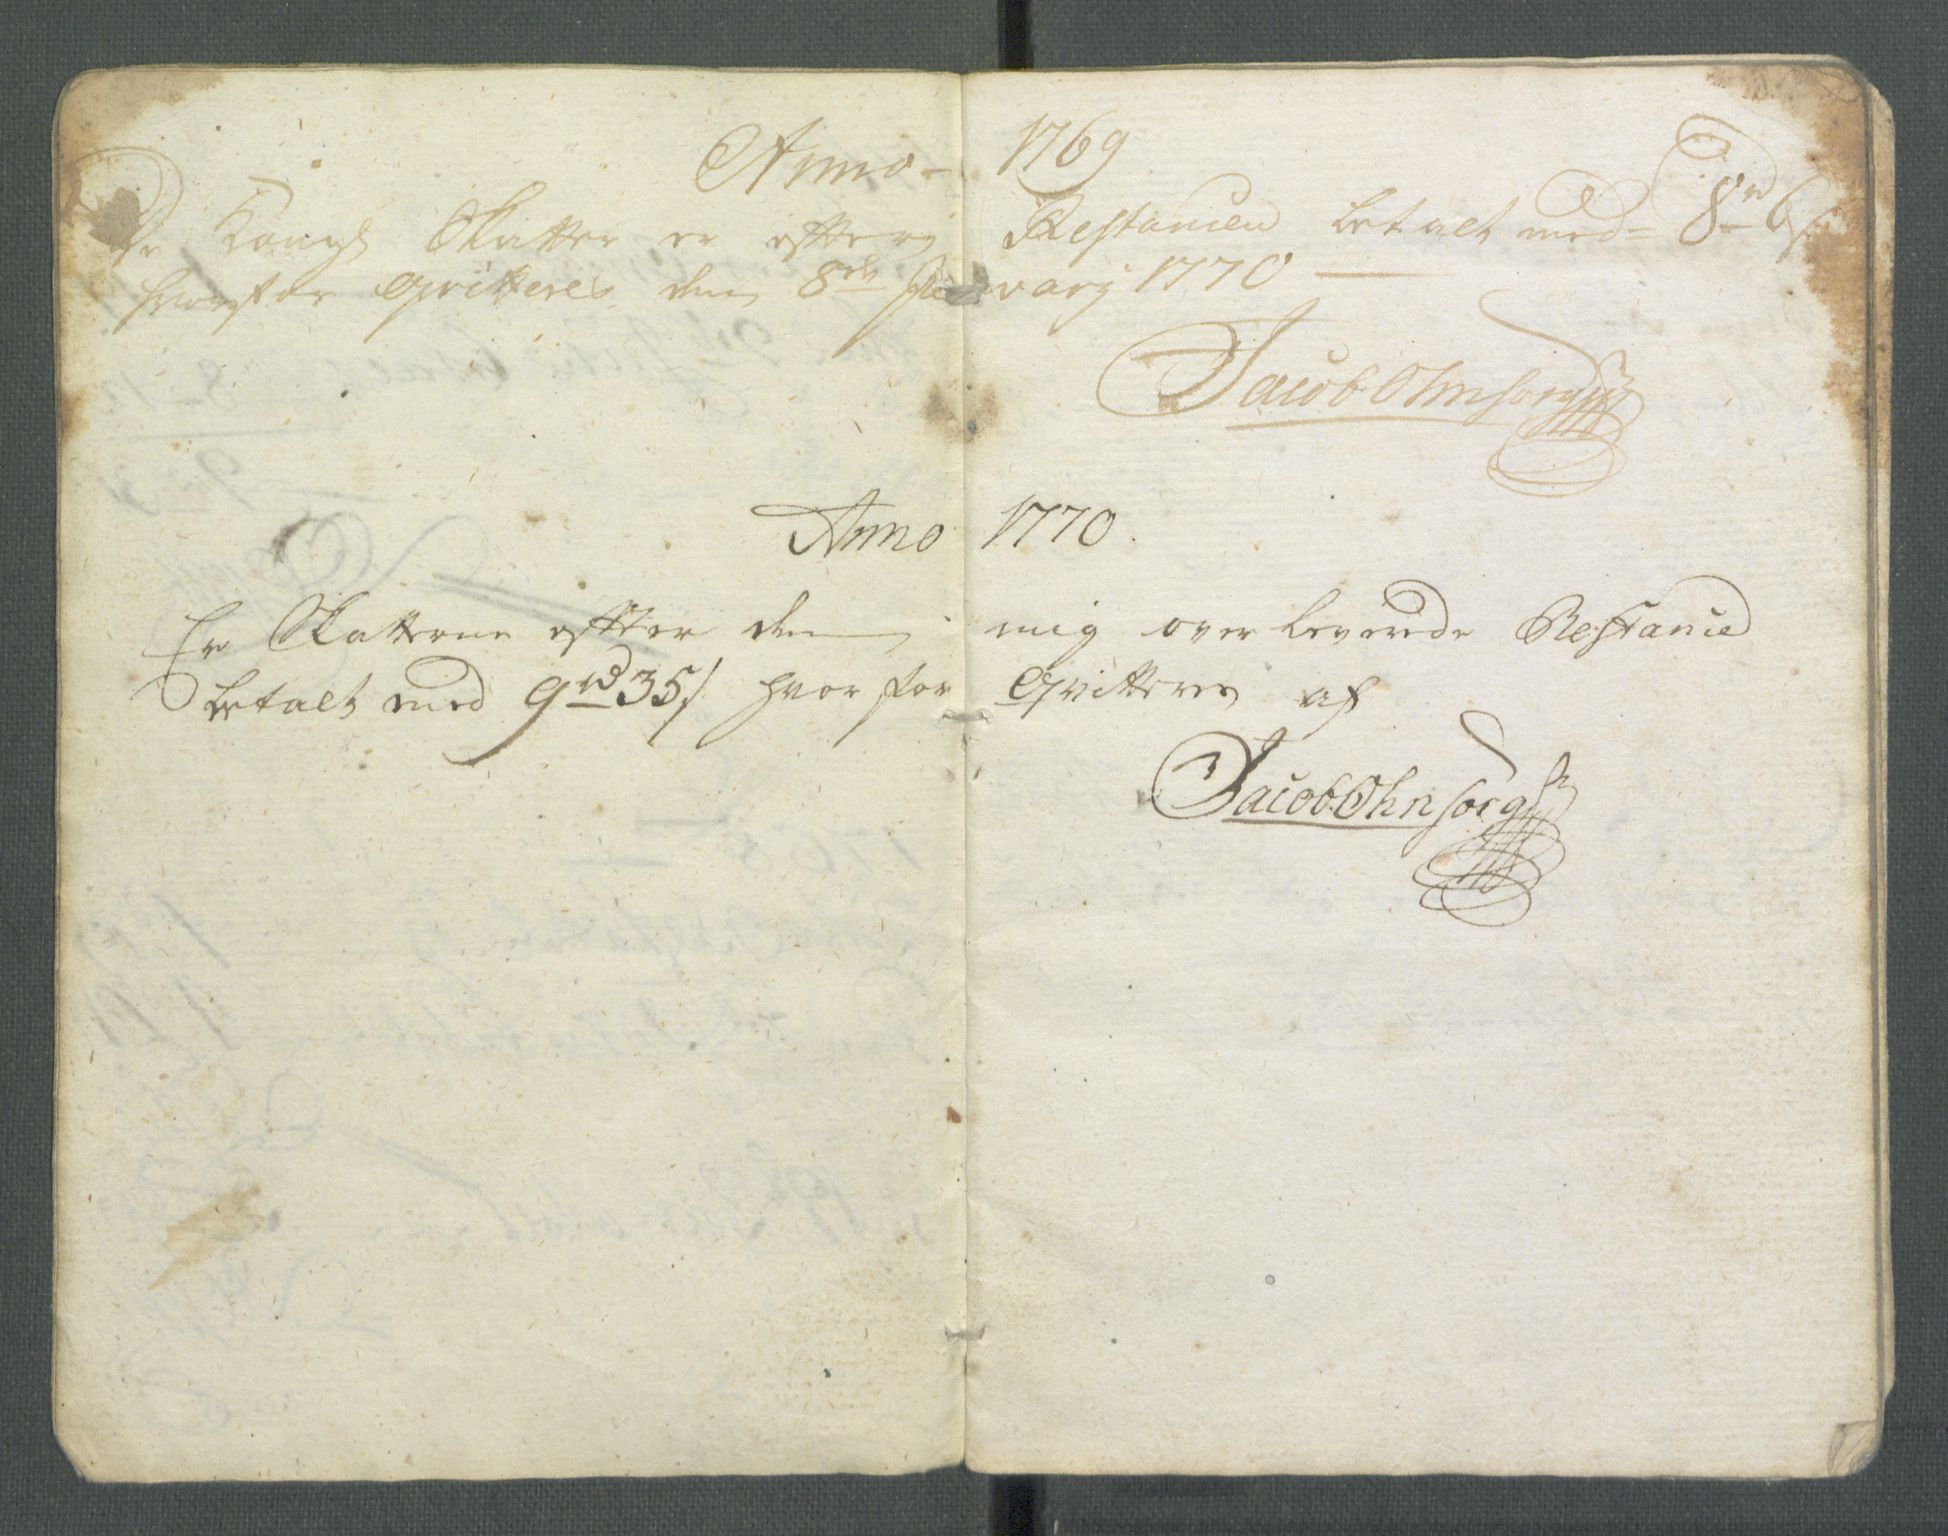 Anno - 1769
De Kongl Skatter er efter Restancen betalt med = 8 rd 6 s
hvorfor Qvitteres den 8de Januarij 1770
Jacob Ohnsorg
Anno 1770.
Er Skatterne efter den mig over leverede Restance
betalt med 9 rd 35 s hvor for Qvitteres af
Jacob Ohnsorg